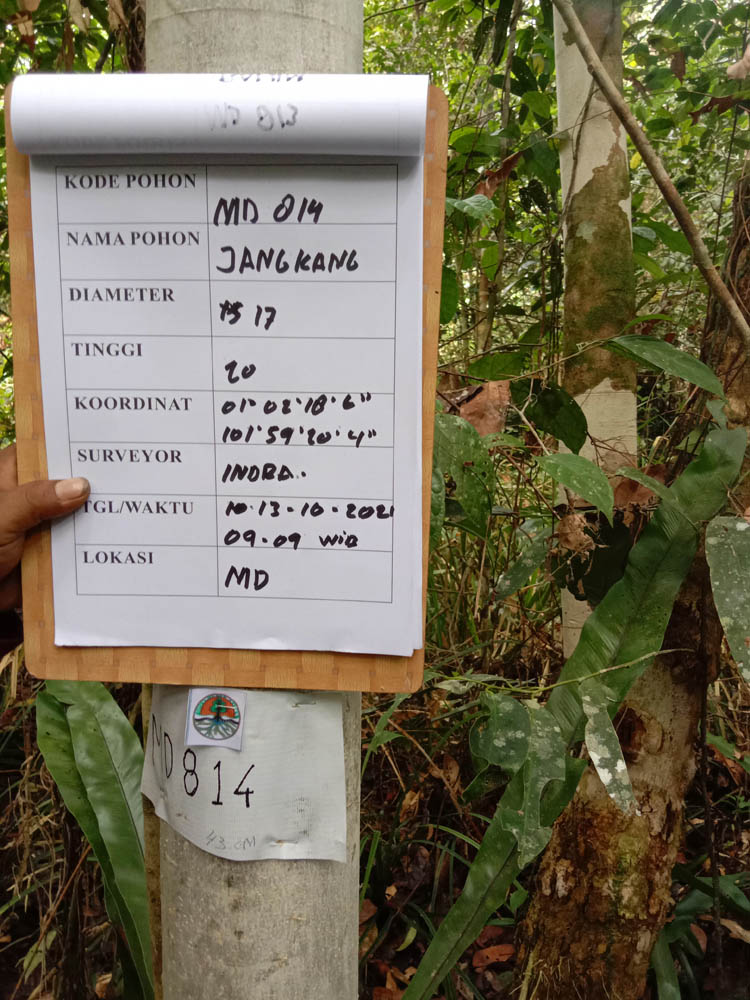 MD 813
KODE POHON MD 814
NAMA POHON JANGKANG
DIAMETER 17
TINGGI 20
KOORDINAT 01° 02' 18' 6"
101° 59' 20' 4"
SURVEYOR INDRA.
TGL/WAKTU 13-10-2021
09-09 WIB
LOKASI MD
MD 814
43 CM